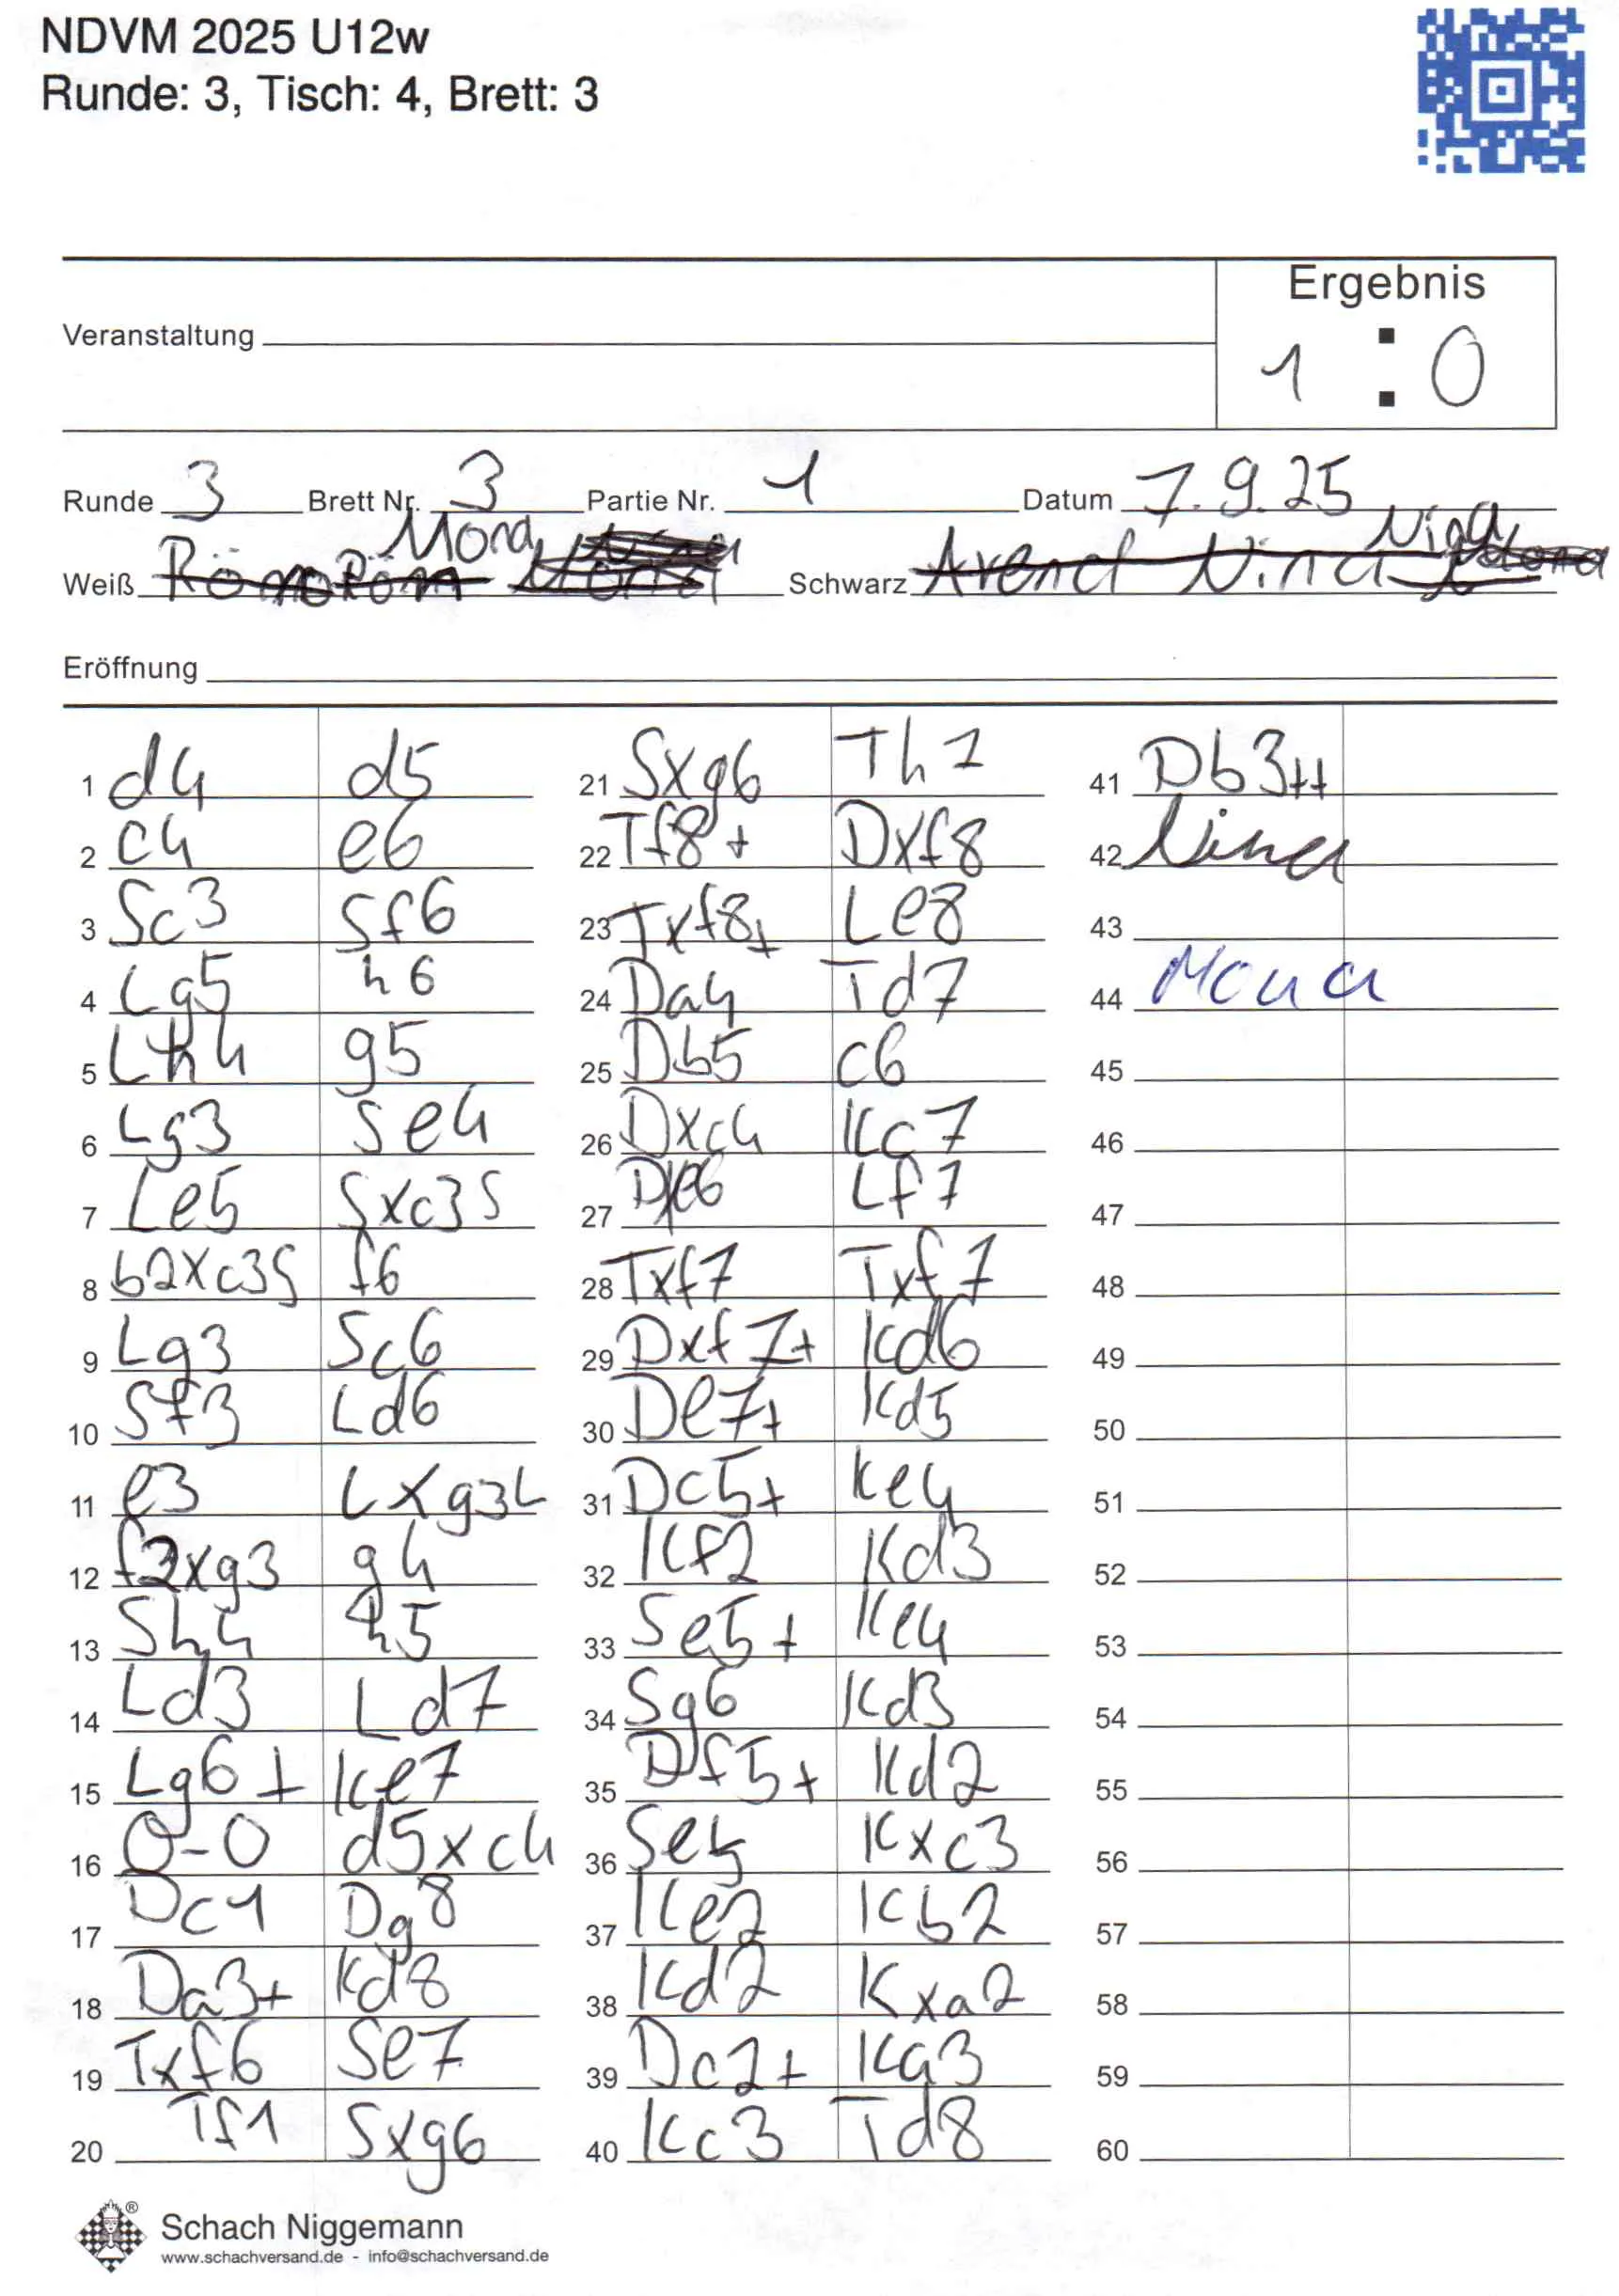 NDVM 2025 U12w
Runde: 3, Tisch: 4, Brett: 3
Ergebnis
Veranstaltung
1 : 0
Runde 3 Brett Nr. 3 Partie Nr. 1 Datum 7.9.25
Weiß Mona Schwarz Arend Nina Nina
Eröffnung
1 d4 d5 21 Sxg6 Th7 41 Db3++
2 c4 e6 22 Tf8+ Dxf8 42 Nina
3 Sc3 Sf6 23 Txf8+ Le8 43
4 Lg5 h6 24 Da4 Td7 44 Mona
5 Lh4 g5 25 Db5 c6 45
6 Lg3 Se4 26 Dxc4 Kc7 46
7 Le5 Sxc3S 27 Dxe6 Lf7 47
8 b2xc3S f6 28 Txf7 Txf7 48
9 Lg3 Sc6 29 Dxf7+ Kd6 49
10 Sf3 Ld6 30 De7+ Kd5 50
11 e3 Lxg3L 31 Dc5+ Ke4 51
12 f2xg3 g4 32 Kf2 Kd3 52
13 Sh4 h5 33 Se5+ Ke4 53
14 Ld3 Ld7 34 Sg6 Kd3 54
15 Lg6+ Ke7 35 Df5+ Kd2 55
16 0-0 d5xc4 36 Se5 Kxc3 56
17 Dc1 Dg8 37 Ke2 Kb2 57
18 Da3+ Kd8 38 Kd2 Kxa2 58
19 Txf6 Se7 39 Dc2+ Ka3 59
20 Tf1 Sxg6 40 Kc3 Td8 60
Schach Niggemann
www.schachversand.de - info@schachversand.de